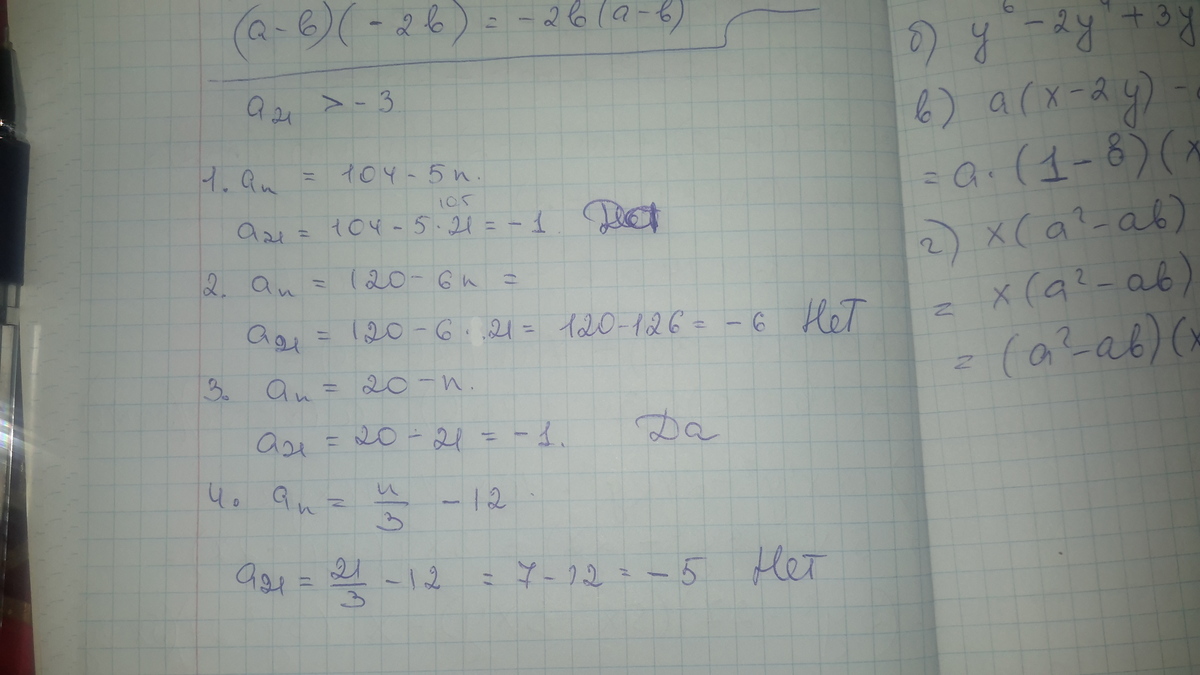 (a-в)(-2в) = -2в(a-в)
a₂₁ > -3
1. aₙ = 104 - 5n.
105
a₂₁ = 104 - 5·21 = -1. Да
2. aₙ = 120 - 6n =
a₂₁ = 120 - 6·21 = 120-126 = -6 Нет
3. aₙ = 20 - n.
a₂₁ = 20 - 21 = -1. Да
4. aₙ = n/3 - 12
a₂₁ = 21/3 - 12 = 7-12 = -5 Нет
б) y⁶ - 2y⁴ + 3y
в) a(x-2y) -
= a·(1-в)(x
г) x(a²-ab)
= x(a²-ab)
= (a²-ab)(x